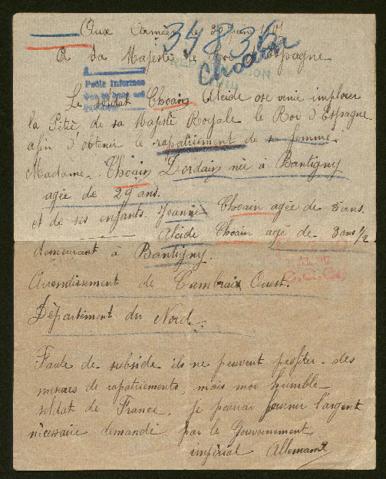 Aux Armées le
34836
Choain
A Sa Majesté le Roi d'Espagne
Le soldat Choain Alcide ose venir implorer
la Pitié de sa Majesté Royale le Roi d'Espagne
afin d'obtenir le rapatriement de sa femme
Madame Choain Dordain née à Bantigny
agée de 29 ans.
et de ses enfants Jeanne Choain agée de 8 ans
Alcide Choain agé de 3 ans 1/2
demeurant à Bantigny.
Arrondissement de Cambrai Ouest.
Département du Nord.
Faute de subside ils ne peuvent profiter des
mesures de rapatriements, mais moi humble
soldat de France, je pourrai fournir l'argent
nécessaire demandé par le Gouvernement
impérial Allemand